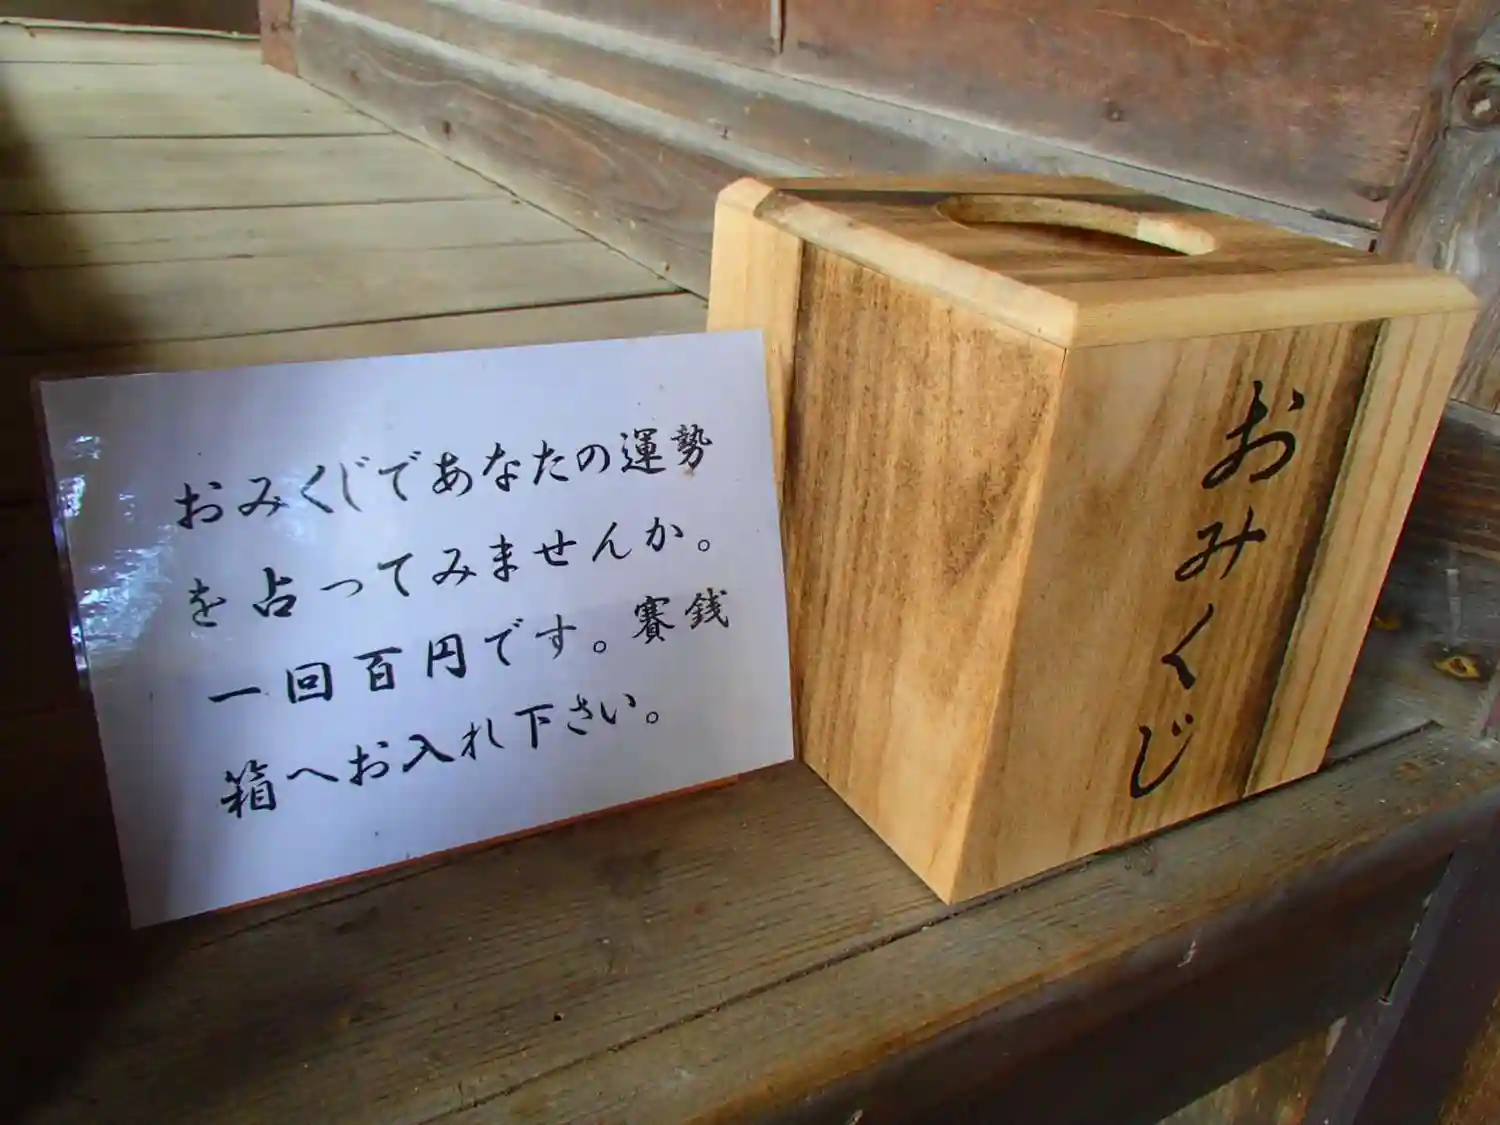 おみくじであなたの運勢
を占ってみませんか。
一回百円です。賽銭
箱へお入れ下さい。
おみくじ